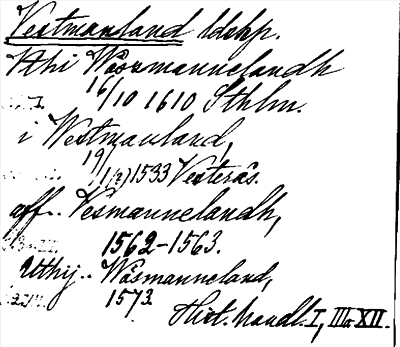 Vestmanland ldskp.
Uthi Wäszmannelandh
16/10 1610 Sthlm.
i Westmanland,
19/1(?) 1533 Vesterås.
aff.. Vesmannelandh,
1562-1563.
Utthij.. Wäsmanneland,
1573.
Hist. handl. I, IIIa XII.